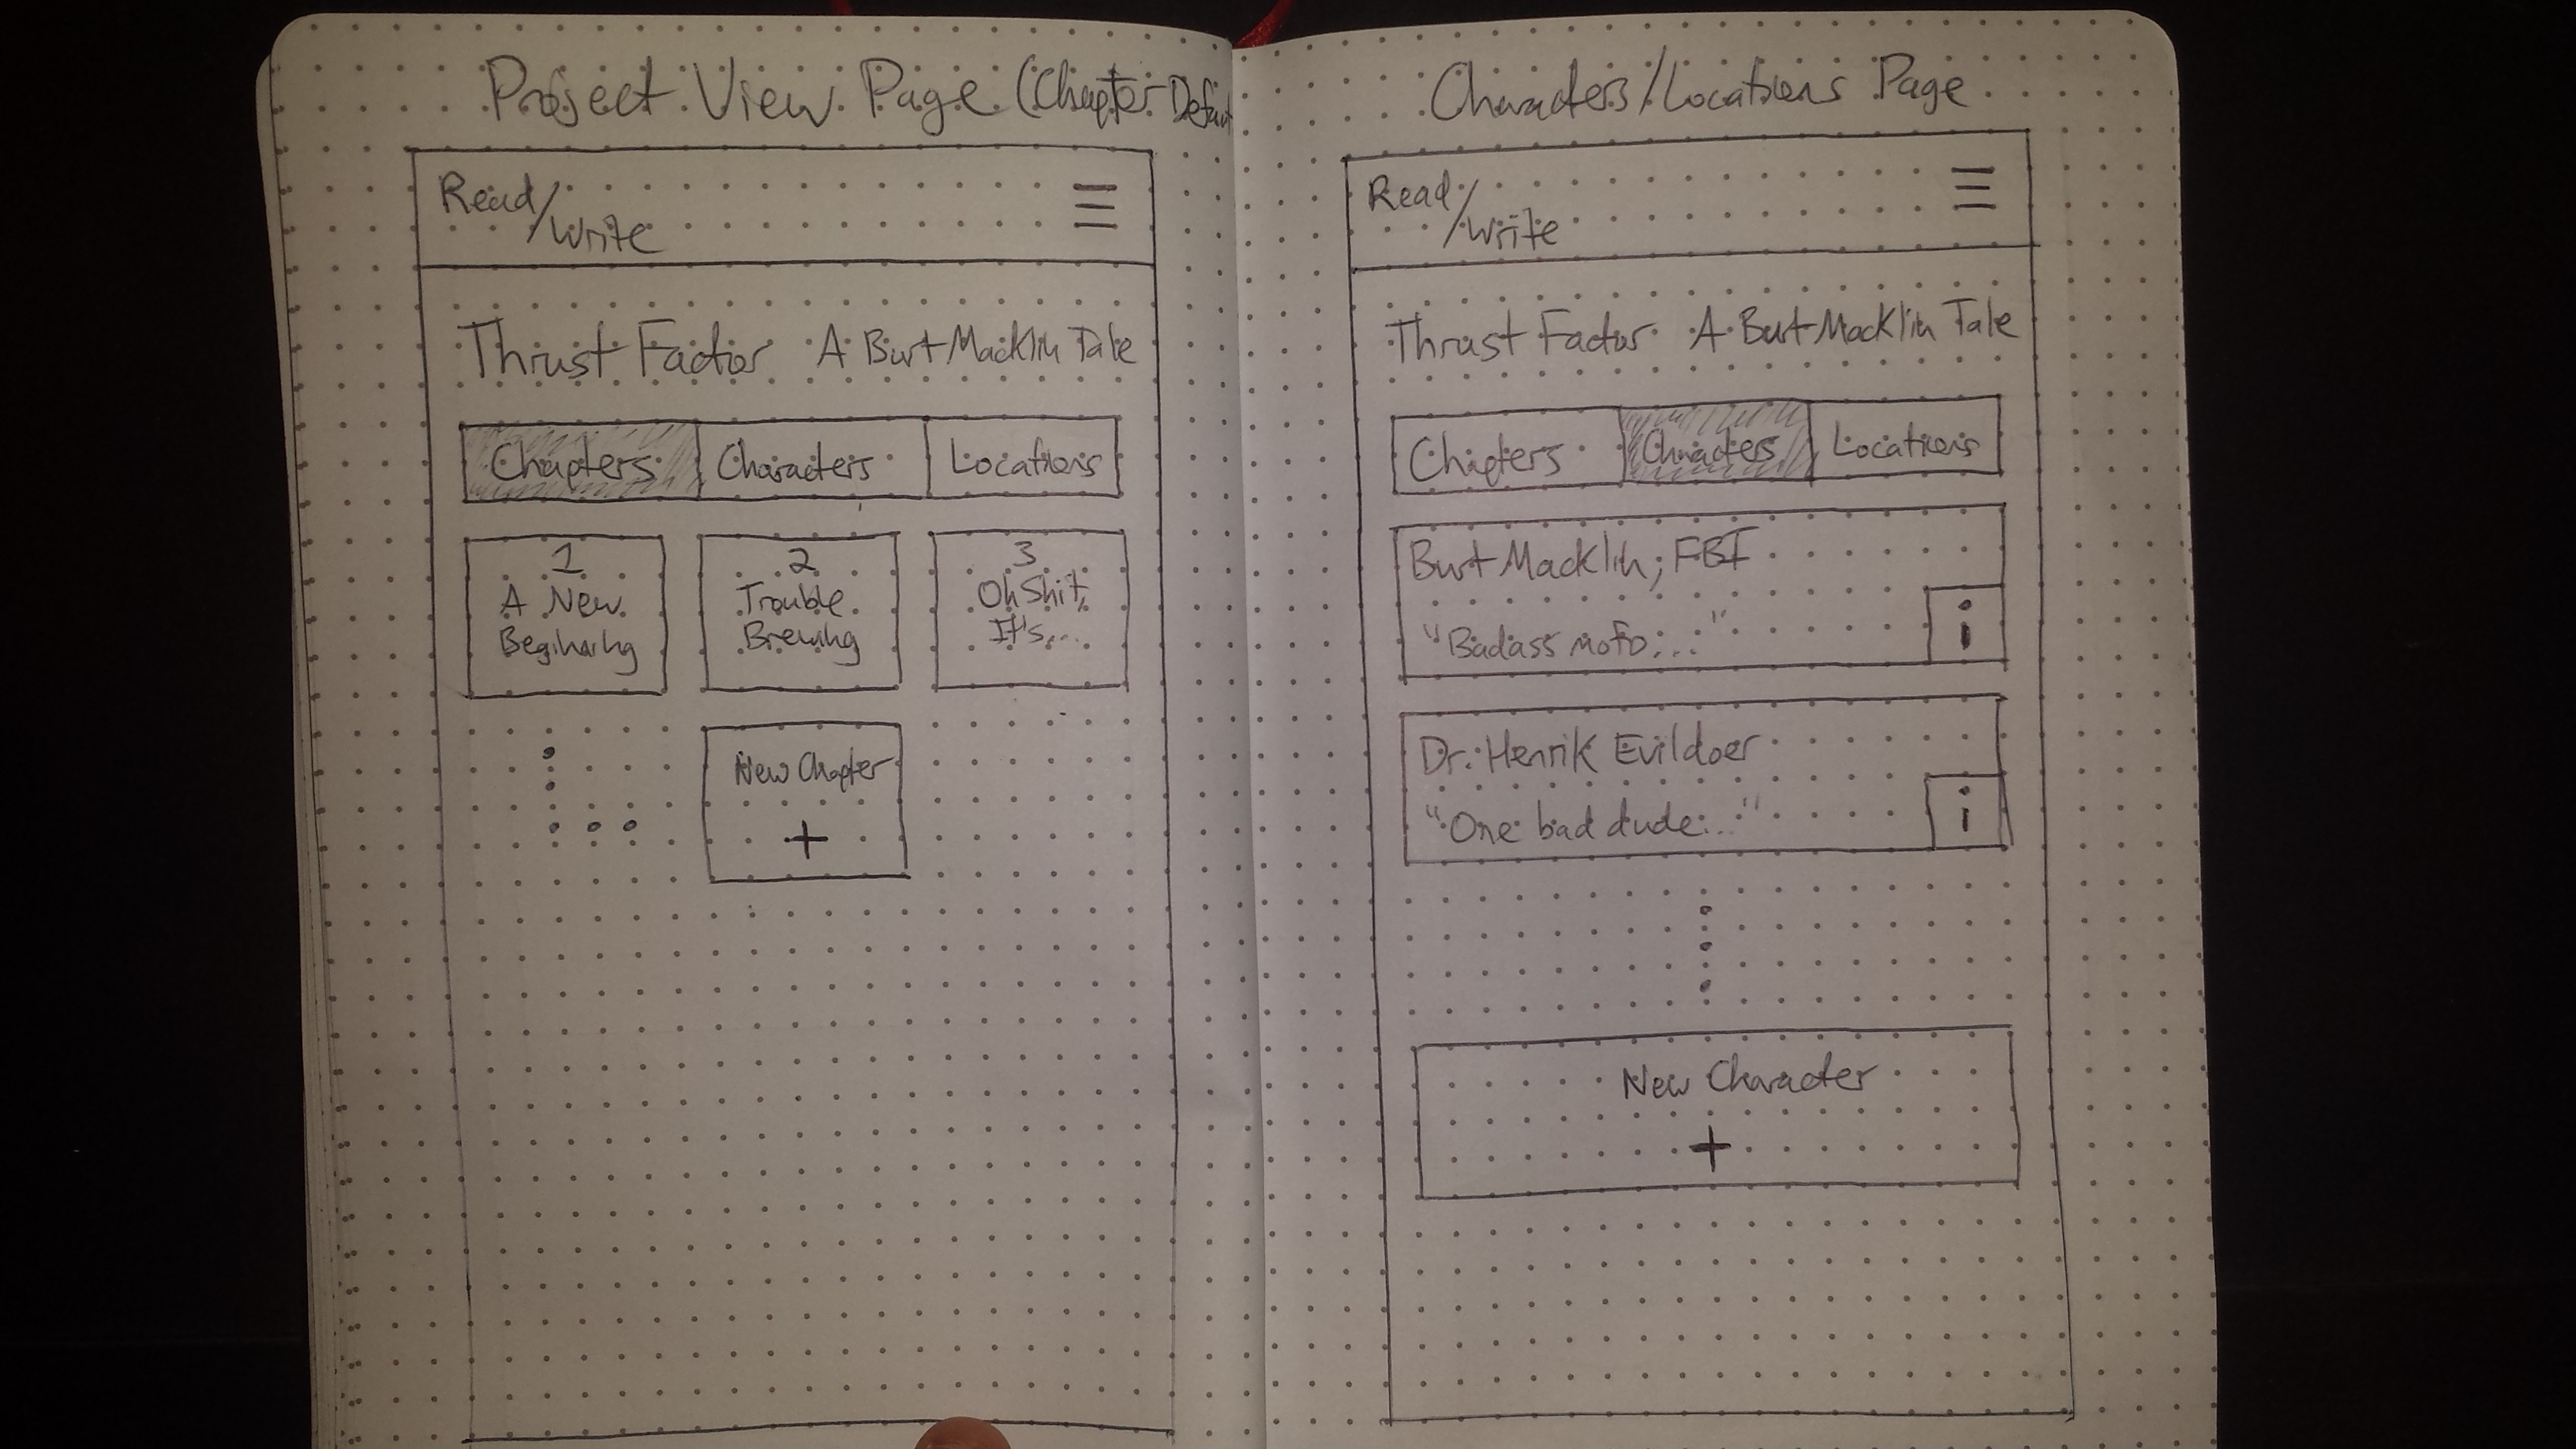 Project View Page (Chapter Defau
Read/
Write
Thrust Factor A Burt Macklin Tale
Chapters Characters Locations
1
A New
Beginning
2
Trouble
Brewing
3
Oh Shit,
It's...
New Chapter
+
Characters/Locations Page
Read/
Write
Thrust Factor A Burt Macklin Tale
Chapters Characters Locations
Burt Macklin, FBI
"Badass mofo..."
i
Dr. Henrik Evildoer
"One bad dude..."
i
New Character
+